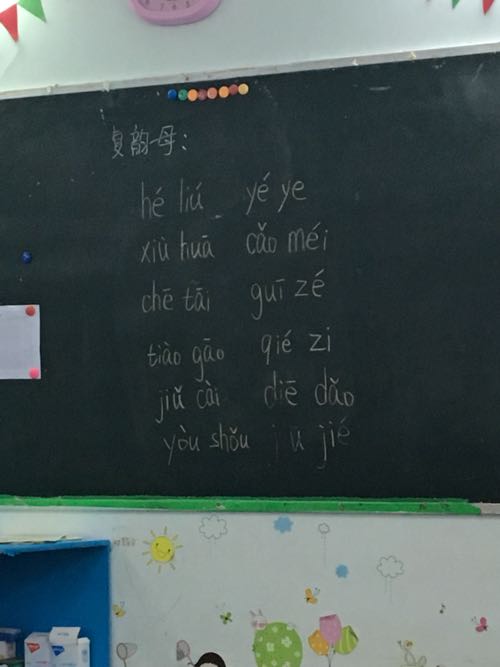 复韵母：
hé liú yé ye
xiù huā cǎo méi
chē tāi guī zé
tiào gāo qié zi
jiǔ cài diē dǎo
yòu shǒu jié